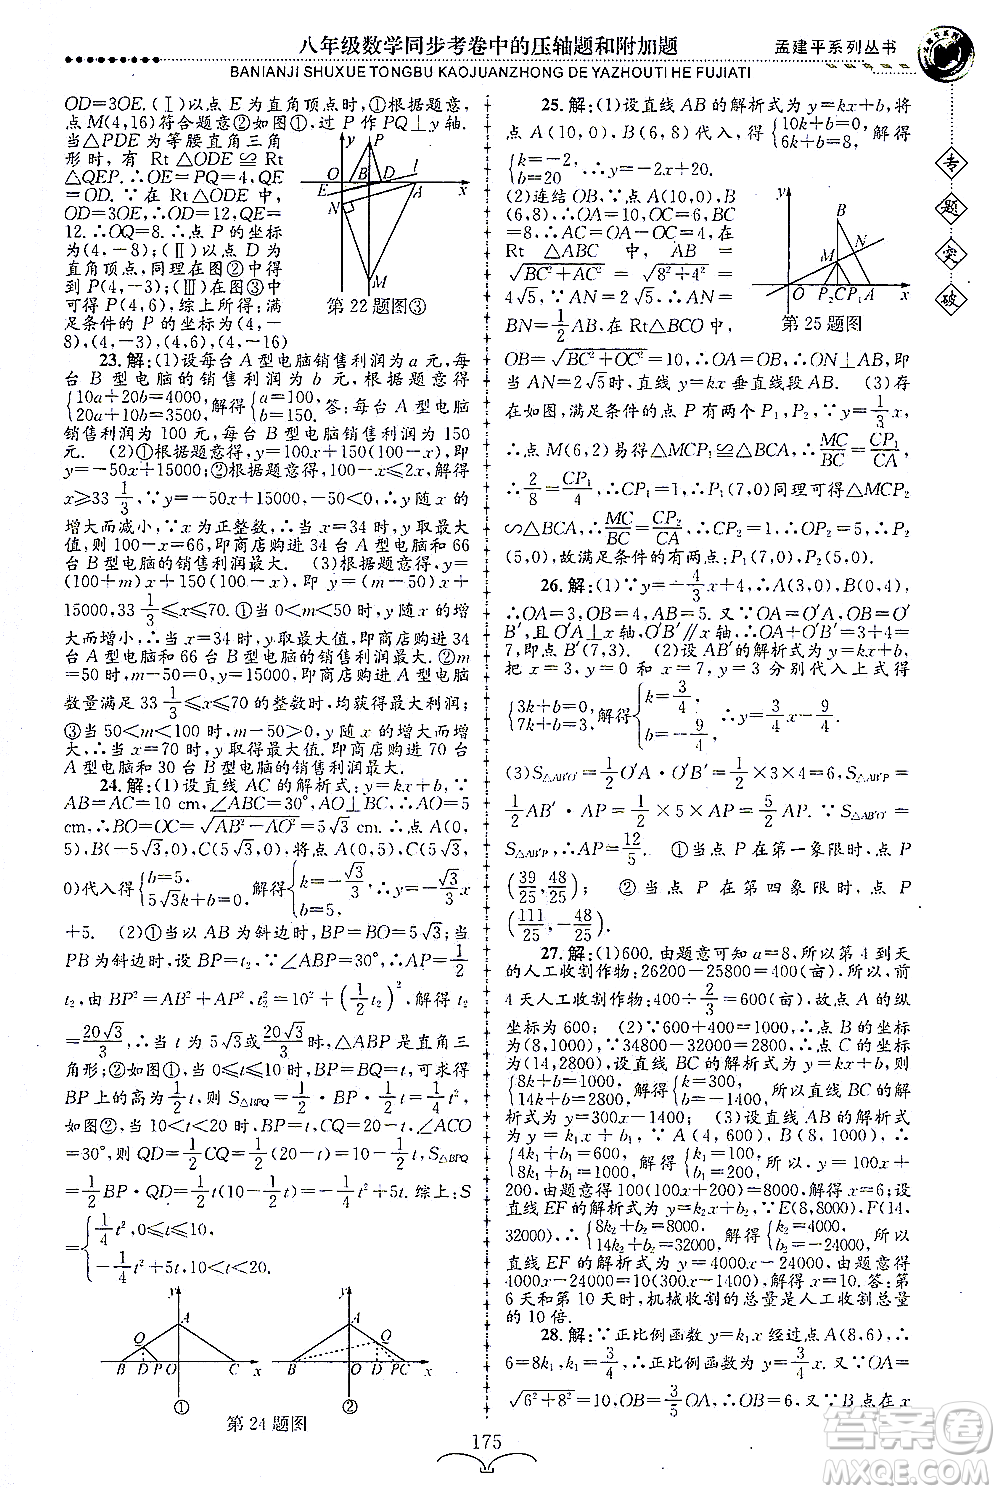 八年级数学同步考卷中的压轴题和附加题
孟建平系列丛书
BANIANJI SHUXUE TONGBU KAOJUANZHONG DE YAZHOUTI HE FUJIATI
专题突破
OD=3OE.(Ⅰ)以点 E 为直角顶点时,①根据题意,
点 M(4,16)符合题意②如图①,过 P 作 PQ⊥y 轴.
当△PDE 为等腰直角三角
形时,有 Rt △ODE ≌ Rt
△QEP. ∴OE=PQ=4,QE=
OD. ∵ 在 Rt △ODE 中,
OD=3OE,∴OD=12,QE=
12. ∴OQ=8. ∴点 P 的坐
标为(4,-8);(Ⅱ)以点 D 为
直角顶点,同理在图②中得
到 P(4,-6);(Ⅲ)在图③中
可得 P(4,6),综上所得:满
足条件的 P 的坐标为(4,-
8),(4,-6),(4,6),(4,-16)
第 22 题图③
23. 解:(1)设每台 A 型电脑销售利润为 a 元,每
台 B 型电脑的销售利润为 b 元,根据题意得
{10a+20b=4000, 20a+10b=3500,解得{a=100, b=150.答:每台 A 型电脑
销售利润为 100 元,每台 B 型电脑的销售利润为 150
元. (2)①根据题意得,y=100x+150(100-x),即
y=-50x+15000;②根据题意得,100-x≤2x,解得
x≥33 1/3,∵y=-50x+15000,-50<0,∴y 随 x 的
增大而减小,∵x 为正整数,∴当 x=34 时,y 取最大
值,则 100-x=66,即商店购进 34 台 A 型电脑和 66
台 B 型电脑的销售利润最大. (3)根据题意得 y=
(100+m)x+150(100-x),即 y=(m-50)x+
15000,33 1/3≤x≤70. ①当 0<m<50 时,y 随 x 的增
大而减小,∴当 x=34 时,y 取最大值,即商店购进 34
台 A 型电脑和 66 台 B 型电脑的销售利润最大. ②m
=50 时,m-50=0,y=15000,即商店购进 A 型电脑
数量满足 33 1/3≤x≤70 的整数时,均获得最大利润;
③当 50<m<100 时,m-50>0,y 随 x 的增大而增
大,∴当 x=70 时,y 取得最大值.即商店购进 70 台
A 型电脑和 30 台 B 型电脑的销售利润最大.
24. 解:(1)设直线 AC 的解析式:y=kx+b,∵
AB=AC=10 cm,∠ABC=30°,AO⊥BC,∴AO=5
cm,∴BO=OC=√(AB²-AO²)=5√3 cm. ∴点 A(0,
5),B(-5√3,0),C(5√3,0),将点 A(0,5),C(5√3,
0)代入得{b=5, 5√3k+b=0,解得{k=-√3/3, b=5. ∴y=-√3/3x
+5. (2)①当以 AB 为斜边时,BP=BO=5√3;当
PB 为斜边时,设 BP=t₂,∵∠ABP=30°,∴AP=1/2
t₂,由 BP²=AB²+AP²,t₂²=10²+(1/2t₂)²,解得 t₂
=20√3/3,∴当 t 为 5√3或20√3/3时,△ABP 是直角三
角形;②当 0≤t≤10 时,如图①,BP=BQ=t,可求得
BP 上的高为1/2t,则 S△BPQ=1/2t·1/2t=1/4t²;如图
②,当 10<t<20 时,BP=t,CQ=20-t,∠ACO
=30°,则 QD=1/2CQ=1/2(20-t)=10-1/2t,S△BPQ=
1/2BP·QD=1/2t(10-1/2t)=-1/4t²+5t.综上:S
={1/4t²,0≤t≤10, -1/4t²+5t,10<t<20.
第 24 题图
25. 解:(1)设直线 AB 的解析式为 y=kx+b,将
点 A(10,0),B(6,8)代入得,{10k+b=0, 6k+b=8,解得
{k=-2, b=20. ∴y=-2x+20.
(2)连结 OB,∵点 A(10,0),B
(6,8),∴OA=10,OC=6,BC
=8,∴AC=OA-OC=4. 在
Rt △ABC 中,AB=
√(BC²+AC²)=√(8²+4²)=
4√5,∵M(6,2),∴AN=
BN=1/2AB=2√5,在 Rt△BCO 中,
第 25 题图
OB=√(BC²+OC²)=10,∴OA=OB,∴ON⊥AB,即
当 AN=2√5时,直线 y=kx 垂直线段 AB. (3)存
在,如图,满足条件的点 P 有两个 P₁,P₂,∵y=1/3x,
∴点 M(6,2)易得△MCP₁≌△BCA,∴MC/BC=CP₁/CA
∴2/8=CP₁/4,∴CP₁=1,∴P₁(7,0)同理可得△MCP₂
∽△BCA,∴MC/BC=CP₂/CA,∴CP₂=1,∴OP₂=5,∴P₂
(5,0),故满足条件的有两点:P₁(7,0),P₂(5,0).
26. 解:(1)∵y=-4/3x+4,∴A(3,0),B(0,4),
∴OA=3,OB=4,AB=5. 又∵OA=O′A,OB=O′
B′,且 O′A⊥x 轴,O′B′∥x 轴,∴O′B′+O′A=3+4=
7,即点 B′(7,3). (2)设 AB′的解析式为 y=kx+b,
把 x=3,y=0 和 x=7,y=3 分别代入上式得
{3k+b=0, 7k+b=3,解得{k=3/4, b=-9/4, ∴y=3/4x-9/4.
(3)S△AB′O′=1/2O′A·O′B′=1/2×3×4=6,S△AB′P=
1/2AB′·AP=1/2×5×AP=5/2AP. ∵S△AB′O′=
S△AB′P,∴AP=12/5. ①当点 P 在第一象限时,点 P
(39/25,48/25); ②当点 P 在第四象限时,点 P
(111/25,-48/25).
27. 解:(1)600. 由题意可知 a=8,所以第 4 到天
的人工收割作物:26200-25800=400(亩),所以,前
4 天人工收割作物:400÷2/3=600(亩),故点 A 的纵
坐标为 600; (2)∵600+400=1000,∴点 B 的坐标
为(8,1000),∵34800-32000=2800,∴点 C 的坐标
为(14,2800),设直线 BC 的解析式为 y=kx+b,则
{8k+b=1000, 14k+b=2800, 解得{k=300, b=-1400,所以直线 BC 的解
析式为 y=300x-1400; (3)设直线 AB 的解析式
为 y=k₁x+b₁,∵A(4,600),B(8,1000),∴
{4k₁+b₁=600, 8k₁+b₁=1000,解得{k₁=100, b₁=200,所以 y=100x+
200,由题意得,10(100x+200)=8000,解得 x=6;设
直线 EF 的解析式为 y=k₂x+b₂,∵E(8,8000),F(14,
32000),∴{8k₂+b₂=8000, 14k₂+b₂=32000,解得{k₂=4000, b₂=-24000,所以
直线 EF 的解析式为 y=4000x-24000,由题意
得,4000x-24000=10(300x-1400),解得 x=10. 答:第
6 天和第 10 天时,机械收割的总量是人工收割总量的
的 10 倍.
28. 解:∵正比例函数 y=k₁x 经过点 A(8,6),∴
6=8k₁,∴k₁=3/4,∴正比例函数为 y=3/4x;又∵OA=
√(6²+8²)=10,OB=3/5OA,∴OB=6,又∵B 点在 x
175